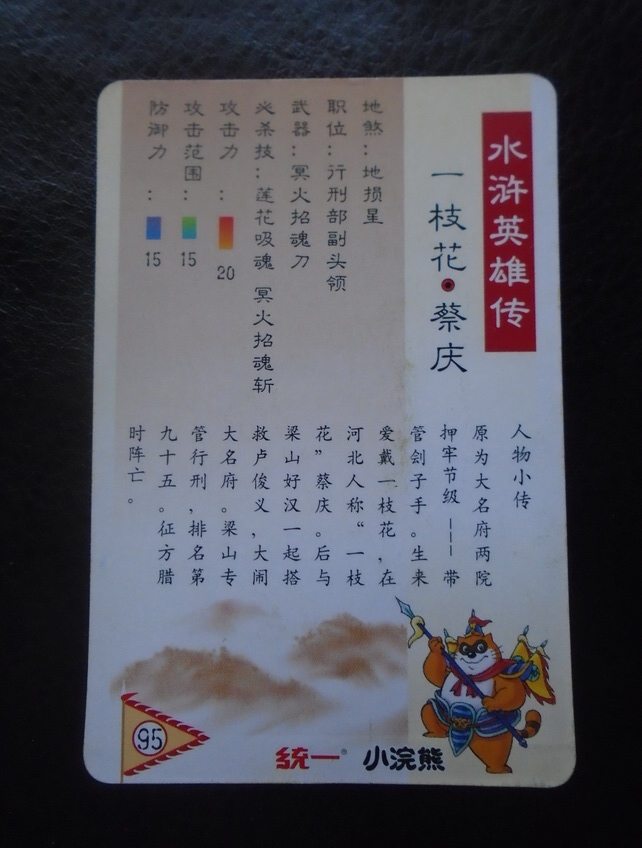 水浒英雄传
一枝花·蔡庆
地煞：地损星
职位：行刑部副头领
武器：冥火招魂刀
必杀技：莲花吸魂 冥火招魂斩
攻击力：20
攻击范围：15
防御力：15
人物小传
原为大名府两院
押牢节级——带
管刽子手。生来
爱戴一枝花，在
河北人称“一枝
花”蔡庆。后与
梁山好汉一起搭
救卢俊义，大闹
大名府。梁山专
管行刑，排名第
九十五。征方腊
时阵亡。
95
统一® 小浣熊